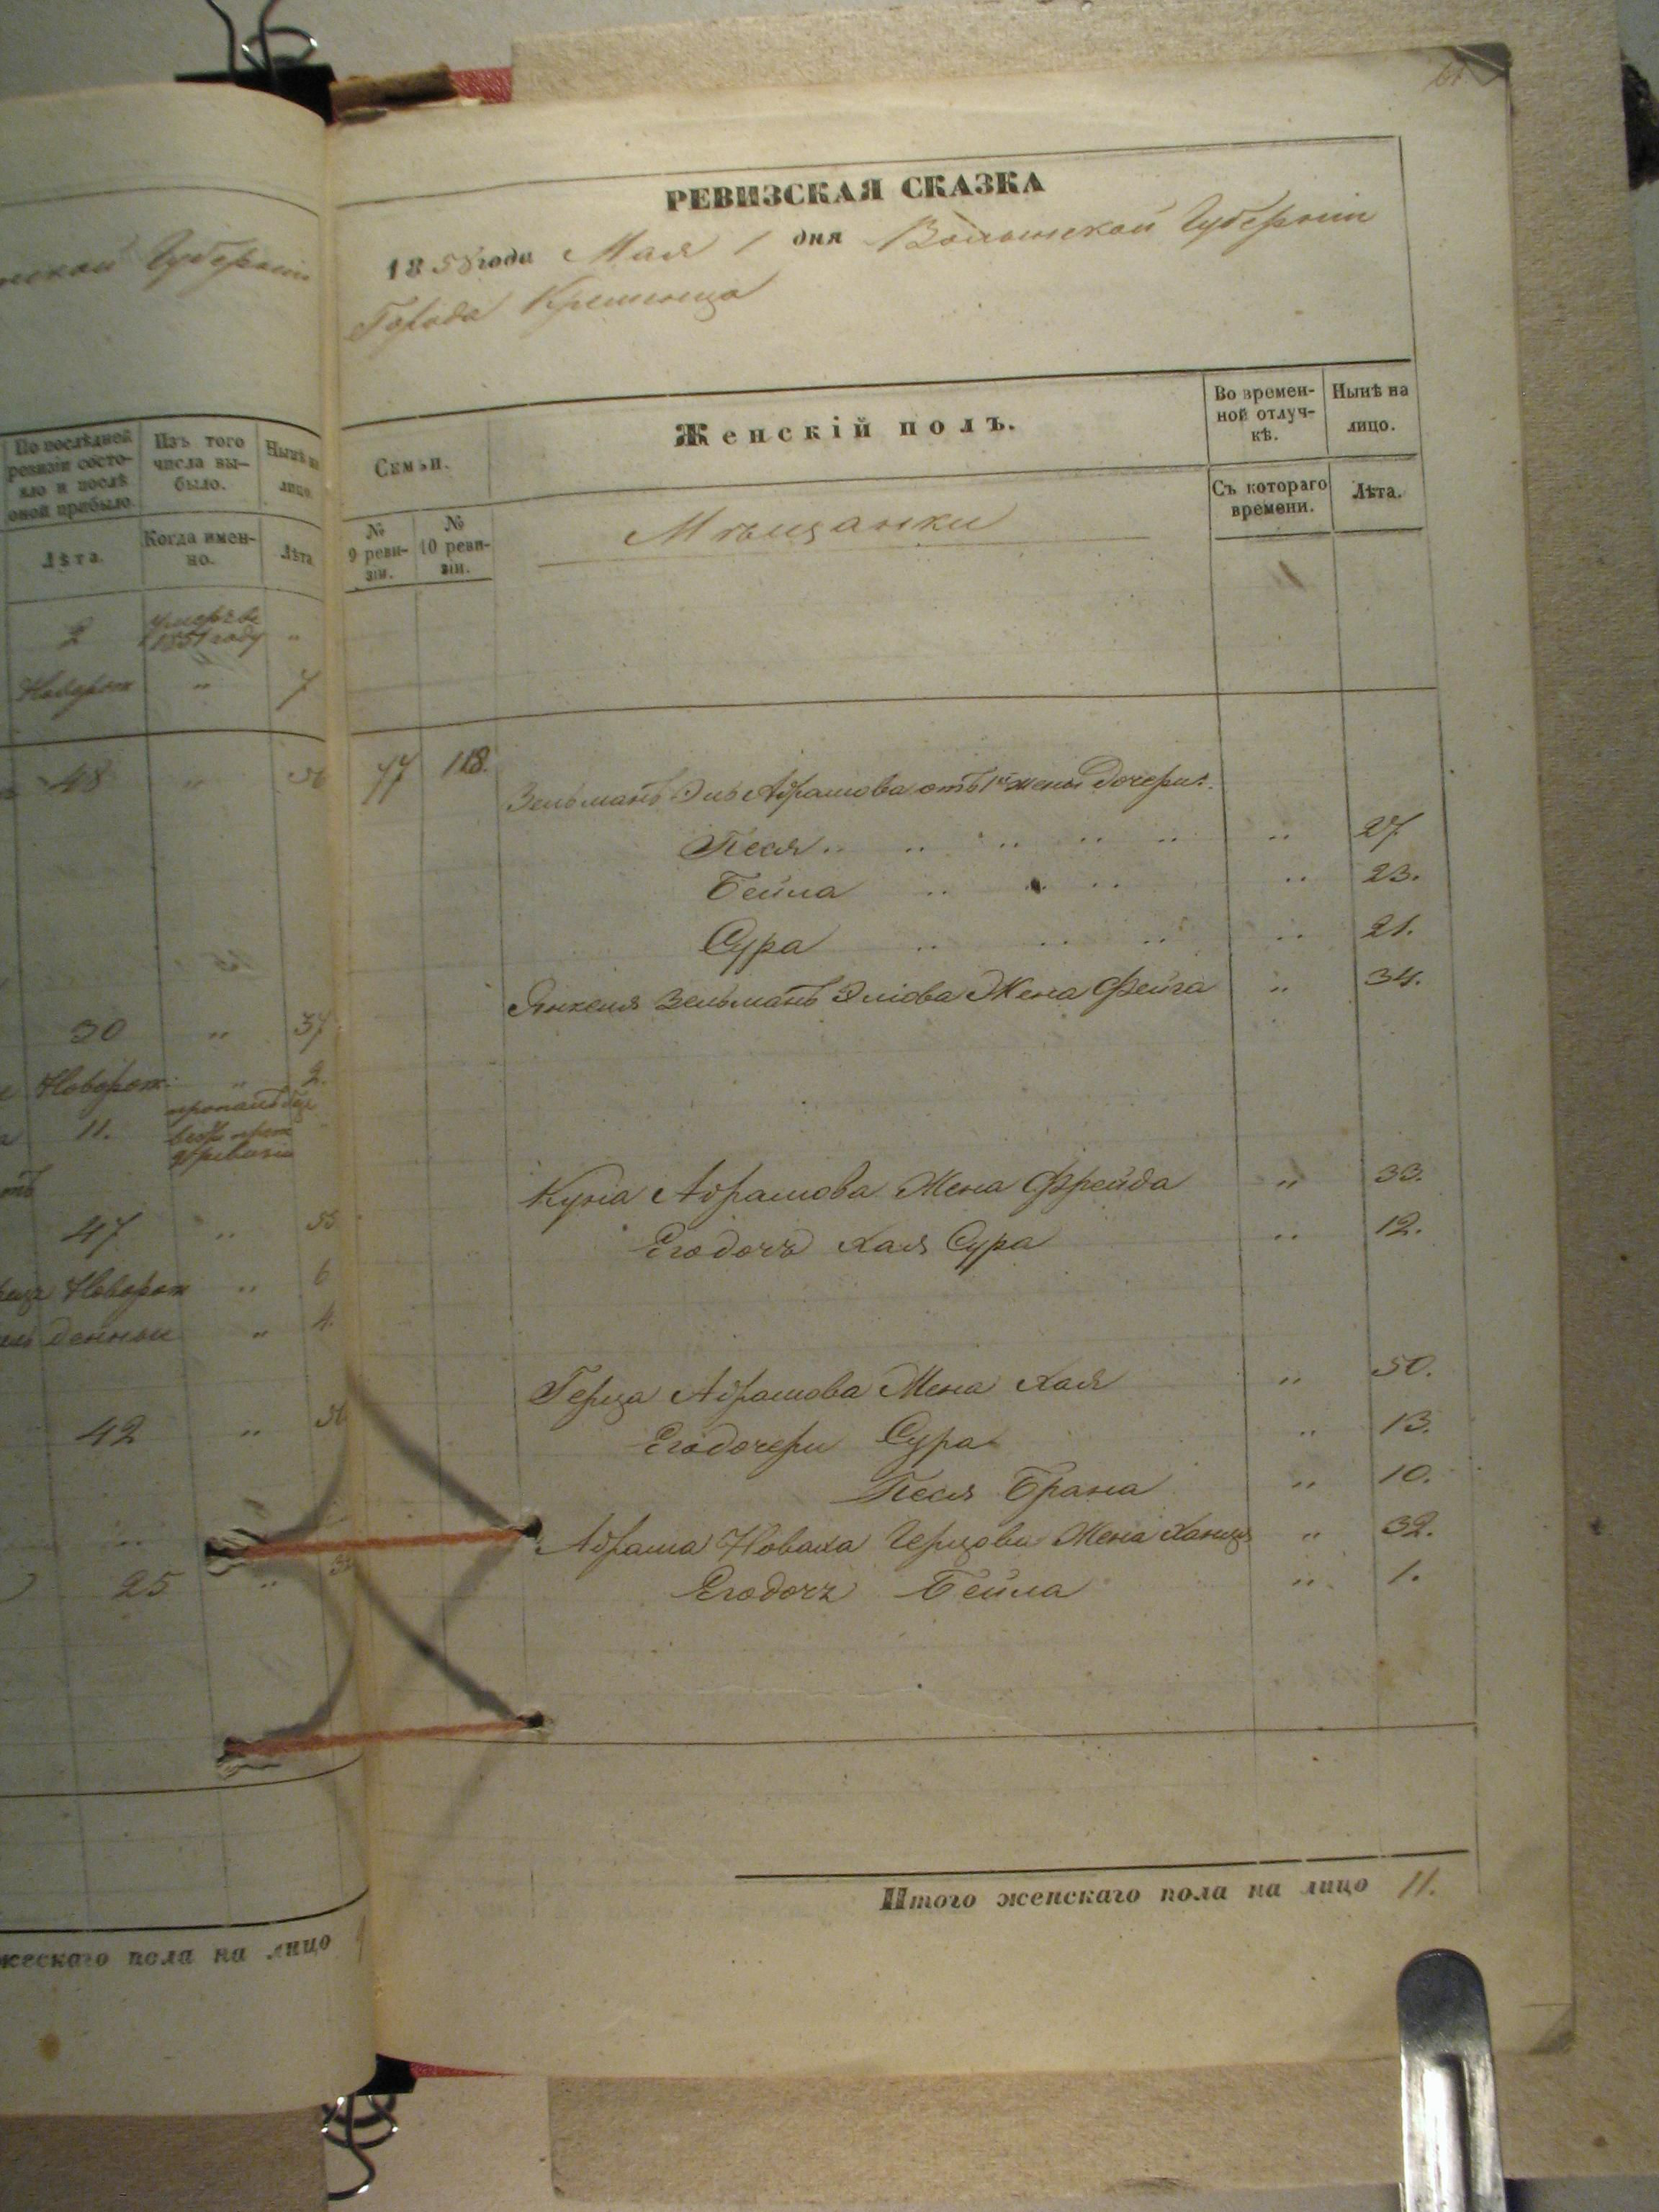 61.
Губерніи
По послѣдней
ревизіи состо-
яло и послѣ
оной прибыло.
Изъ того
числа вы-
было.
Нынѣ на
лицо.
Лѣта.
Когда имен-
но.
Лѣта.
2
умеръ въ
1851 году
"
Новорож
"
7
48
"
56
30
"
37.
Новорож.
"
2.
11.
47
"
55
Новорож
"
6
денныи
"
4.
42
"
25
"
жескаго пола на лицо
РЕВИЗСКАЯ СКАЗКА
1858 года Мая 1 дня Волынской Губерніи
Города Кременца
Семьи.
Женскій полъ.
Во времен-
ной отлуч-
кѣ.
Нынѣ на
лицо.
№
9 реви-
зіи.
№
10 реви-
зіи.
Мѣщанки
Съ котораго
времени.
Лѣта.
77 118. Зельманъ Эль Абрамова отъ 1й жены дочери:
Песя .. .. .. .. .. .. 27.
Бейла .. .. .. .. 23.
Сура .. .. .. .. 21.
Янкеля Зельманъ Эліова Жена Фейга " 34.
Куна Абрамова Жена Фрейда " 33.
Его дочь Хая Сура .. 12.
Герца Абрамова Жена Хая " 50.
Его дочери Сура .. 13.
Песя Брана " 10.
Абрама Новаха Герцова Жена " 32.
Его дочь Бейла " 1.
Итого женскаго пола на лицо 11.